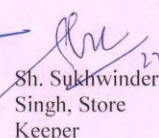 Sh. Sukhwinder
Singh, Store
Keeper